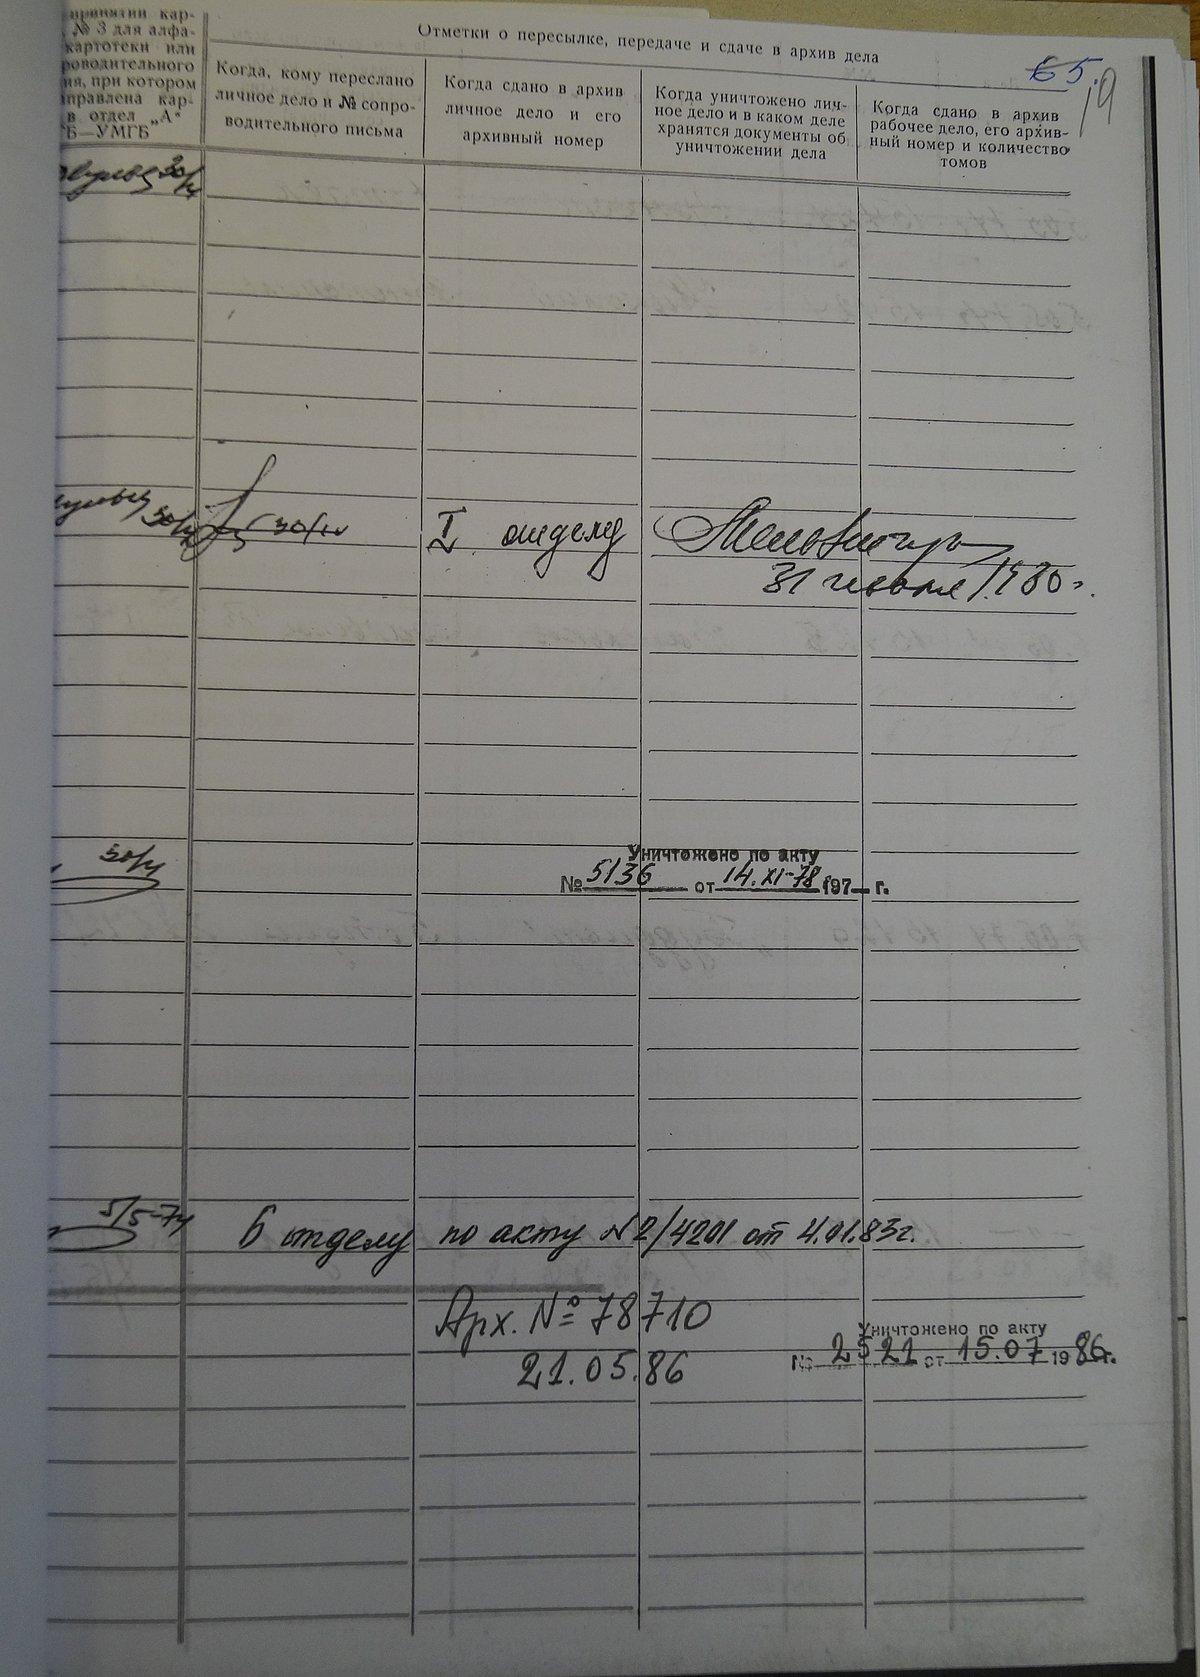 принятии кар-
№ 3 для алфа-
картотеки или
роводительного
ия, при котором
правлена кар-
в отдел „А“
Б—УМГБ
Отметки о пересылке, передаче и сдаче в архив дела
65.
19
Когда, кому переслано
личное дело и № сопро-
водительного письма
Когда сдано в архив
личное дело и его
архивный номер
Когда уничтожено лич-
ное дело и в каком деле
хранятся документы об
уничтожении дела
Когда сдано в архив
рабочее дело, его архив-
ный номер и количество
томов
I отделу
31 июля 1980 г.
Уничтожено по акту
№ 5136 от 14.XI-78 197 г.
5/5-74
6 отделу по акту №2/4201 от 4.01.83г.
Арх. № 78710
21.05.86
Уничтожено по акту
№ 2521 от 15.07 1986 г.